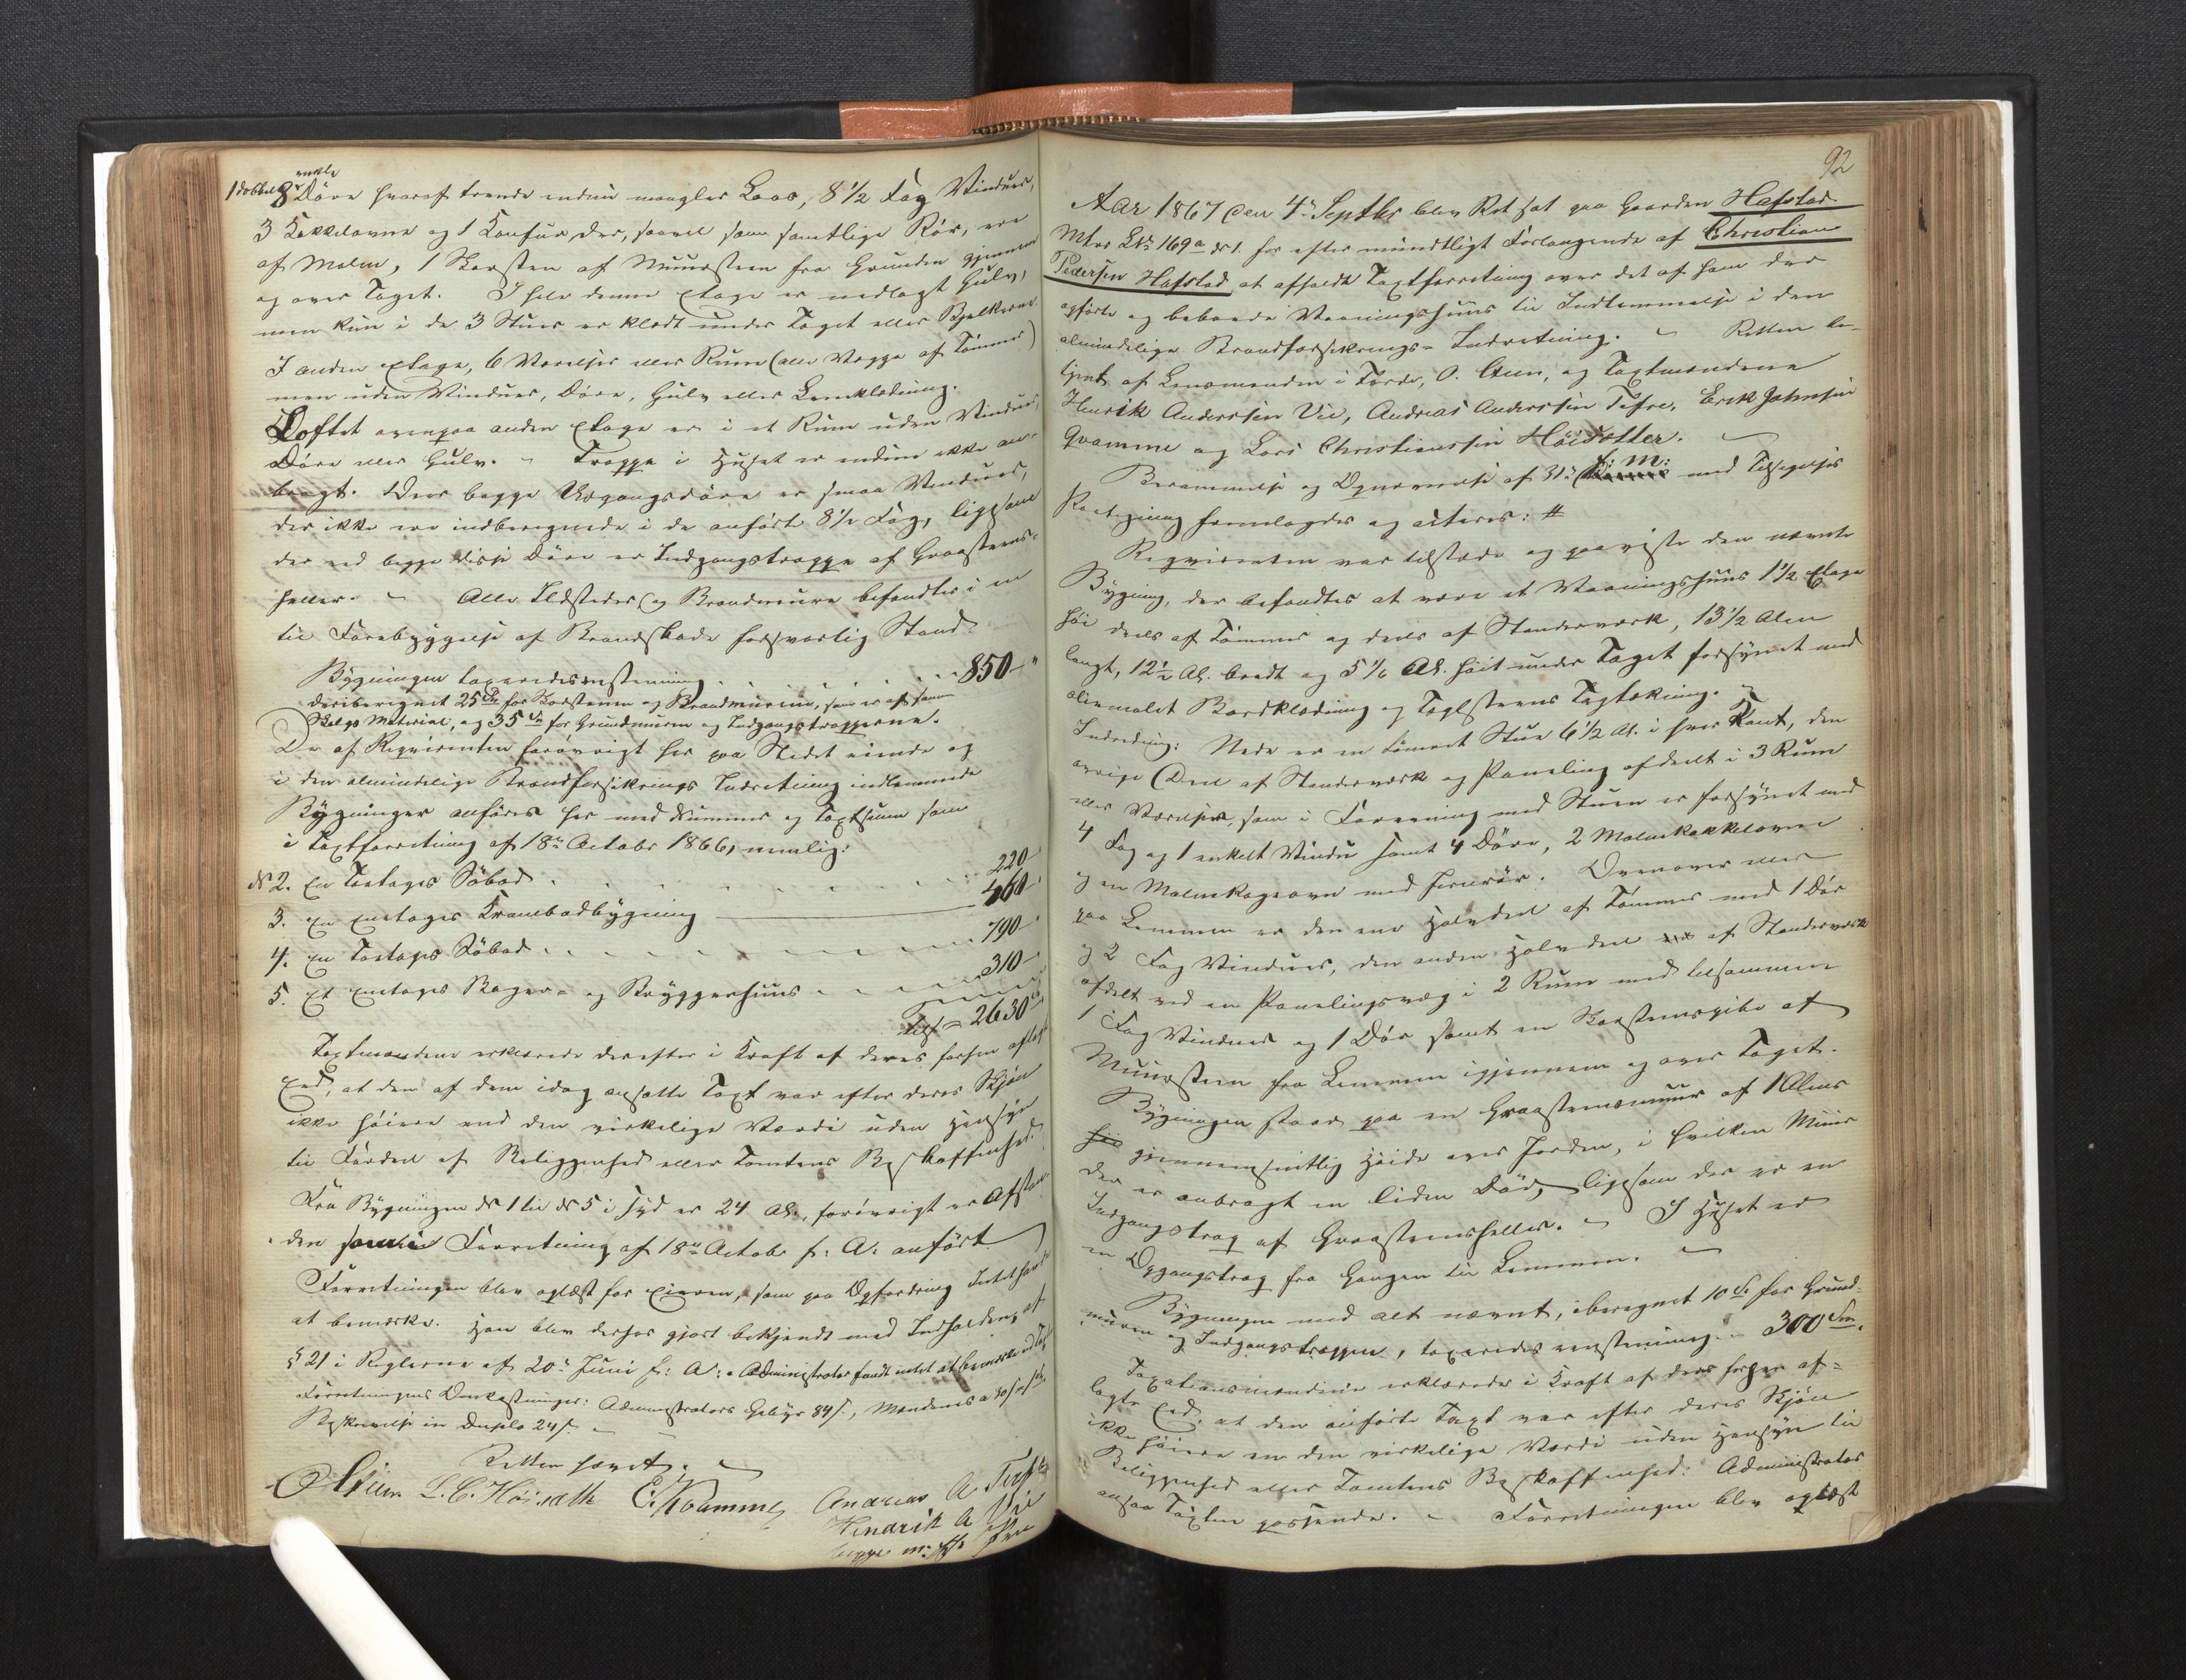 enkle
1 dobbel 8 Döre hvoraf trende endnu mangler Laas, 8 1/2 Fag Vinduer,
3 Kakkelovne og 1 Komfur, der, saavel som samtlige Rör, ere
af Malm, 1 Skorsten af Muursteen fra Grunden gjennem
og over Taget. I hele denne Etage er nedlagt Gulv,
men kun i de 3 Stuer er klædt under Taget eller Bjelkerne.
I anden Etage, 6 Værelser eller Rum (alle Vægge af Tømmer)
men uden Vinduer, Döre, Gulv eller Lemklædning.
Loftet ovenpaa anden Etage er i et Rum uden Vinduer,
Döre eller Gulv. - Trappe i Huset er endnu ikke an-
bragt. Over begge Udgangsdöre er smaa Vinduer,
der ikke ere indberegnede i de anförte 8 1/2 Fag, ligesom
der ved begge disse Döre er Indgangstrappe af Graasteens-
heller. - Alle Ildsteder og Brandmure befandtes i en
til Forebyggelse af Brandskade forsvarlig Stand.
Bygningen taxeredes enstemmig . . . . . 850 - "
deriberegnet 25 Sp for Skorstenen og Brandmurene, som er af samme
Slags Materiale, og 35 Sp for Grundmuren og Indgangstrapperne.
De af Reqvirenten forövrigt her paa Stedet eiende og
i den almindelige Brandforsikrings Indretning indlemmede
Bygninger anföres her med Nummer og Taxtsum som
i Taxtforretning af 18de Octobr 1866, nemlig:
No 2. En Toetages Söbod . . . . . 220 -
3. En Enetages Krambodbygning 460 -
4. En Toetages Söbod . . . . . 790 -
5. Et Enetages Bager- og Bryggerhuus . . . . 310 -
Tils = 2630
Taxtmændene erklærede derefter i Kraft af deres forhen aflagte
Eed, at den af dem idag ansatte Taxt var efter deres Skjön
ikke höiere end den virkelige Værdi uden Hensyn
til Fordeel af Beliggenhed eller Tomtens Beskaffenhed.
Fra Bygningen No 1 til No 5 i Syd er 24 Al., forövrigt er Afstan-
den som i Forretning af 18de Octobr f: A: anfört
Forretningen blev oplæst for Eieren, som paa Opfordring Intet havde
at bemærke. Han blev derhos gjort bekjendt med Indholden af
§ 21 i Reglerne af 20de Juni f: A: - Administrator fandt intet at bemærke ved Taxten
Forretningens Omkostninger: Administrators Gebyr 84 s., Mændenes a 30 s.
Beskrivelse in Duplo 24 s. -
Retten hævet. -
O Steen L. C. Höisæth E. J. Kvamme Andreas A. Tefre
Hendrik A Vie
begge m: p: Pen
92
Aar 1867 den 4de Septbr blev Ret sat paa Gaarden Hafstad
Mtr Lbr 169a No 1. for efter mundtligt Forlangende af Christian
Pedersen Hafstad at afholde Taxtforretning over det af ham der
opförte og beboede Vaaningshuus til Indlemmelse i den
almindelige Brandforsikrings-Indretning. - Retten be-
tjent af Lensmanden i Förde, O. Steen, og Taxtmændene
Henrik Anderssen Vie, Andreas Anderssen Tefre, Erik Johnsen
Qvamme og Lars Christianssen Höisætter. -
f: M:
Berammelse og Opnævnelse af 31te med Tilsigelses
Paategning fremlagdes og acteres: #
Reqvirenten var tilstede og paaviste den nævnte
Bygning, der befandtes at være et Vaaningshuus 1 1/2 Etage
höi deels af Tömmer og deels af Stenderværk, 13 1/2 Alen
langt, 12 1/2 Al. bredt og 5 1/2 Al. höit under Taget forsynet med
oliemalet Bordklædning og Taglsteens Tagtækning. -
Indredning: Nede er en tömret Stue 6 1/2 Al. i hver Kant, den
övrige Deel af Stenderværk og Paneling afdeelt i 3 Rum
eller Værelser, som i Forening med Stuen er forsynet med
4 Fag og 1 enkelt Vindu samt 4 Döre, 2 Malmkakkelovne
og en Malmkogeovn med Jernrör. Ovenover eller
paa Lemmen er den ene Halvdeel af Tömmer med 1 Dör
og 2 Fag Vinduer, den anden Halvdeel af Stenderværk
afdelt ved en Panelingsvæg i 2 Rum med tilsammen
1 Fag Vinduer og 1 Dör samt en Skorsteenspibe af
Muursteen fra Lemmen igjennem og over Taget.
Bygningen staar paa en Graasteensmuur af 1 Alens
gjennemsnitlig Höide over Jorden, i hvilken Muur
der er anbragt en liden Bod, ligesom der er en
Indgangstrap af Graasteensheller. - I Huset er
en Opgangstrap fra Gangen til Lemmen. -
Bygningen med alt nævnt, iberegnet 10 Sp for Grund-
muren og Indgangstrappen, taxeredes enstemmig - 300 Spd.
Taxationsmændene erklærede i Kraft af deres forhen af-
lagte Eed, at den anförte Taxt var efter deres Skjön
ikke höiere en den virkelige Værdi uden Hensyn til
Beliggenhed eller Tomtens Beskaffenhed. Administrator
ansaa Taxten passende. - Forretningen blev oplæst